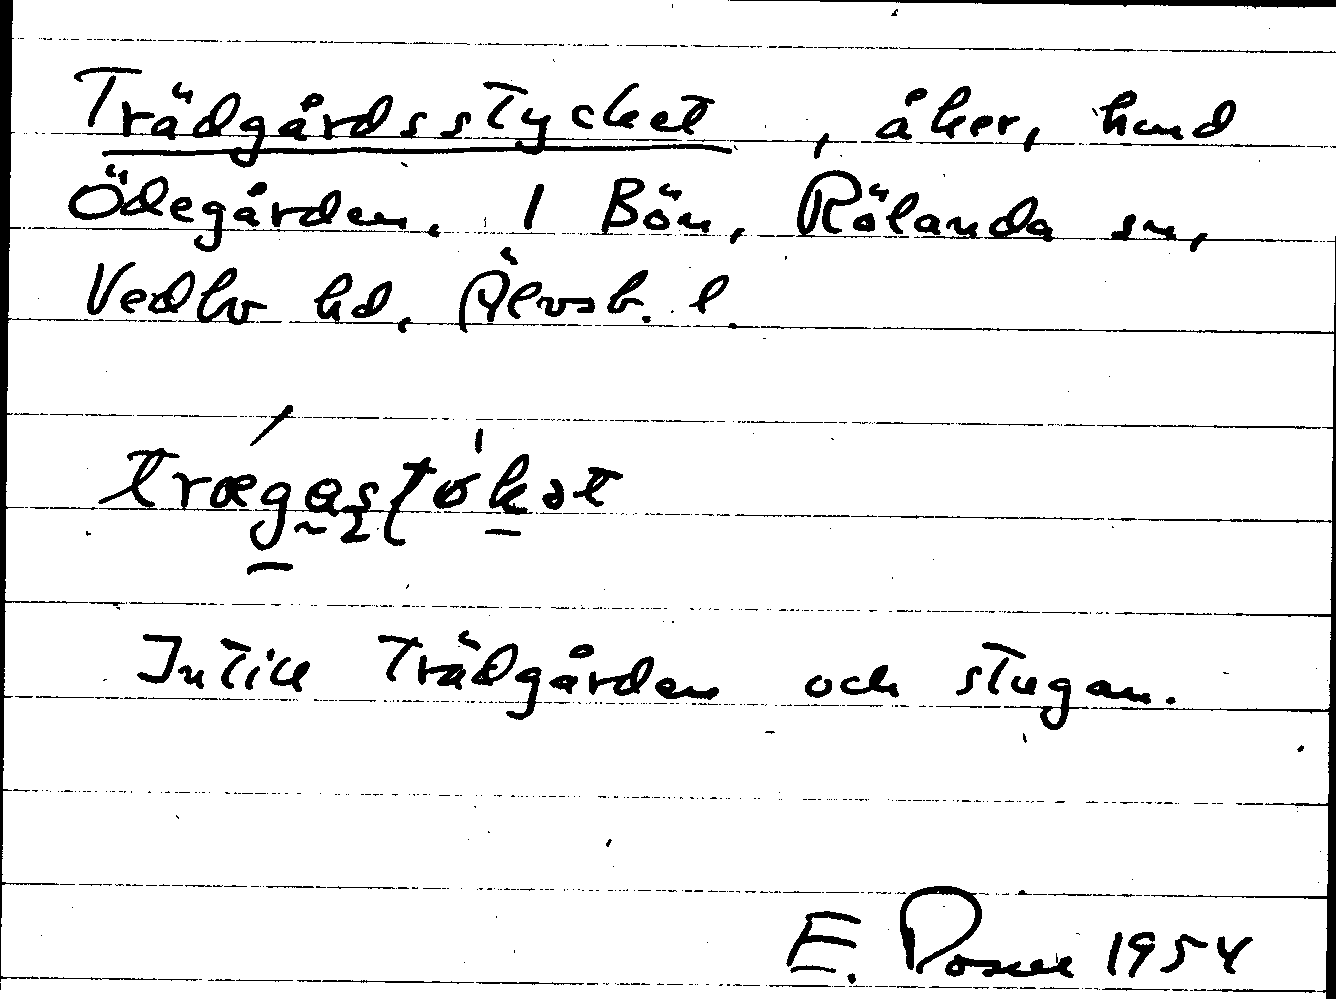 Trädgårdsstycket, åker, hmd
Ödegården. 1 Bön, Rölanda sn,
Vedbo hd, Älvsb. l.
Intill trädgården och stugan.
E. 1954